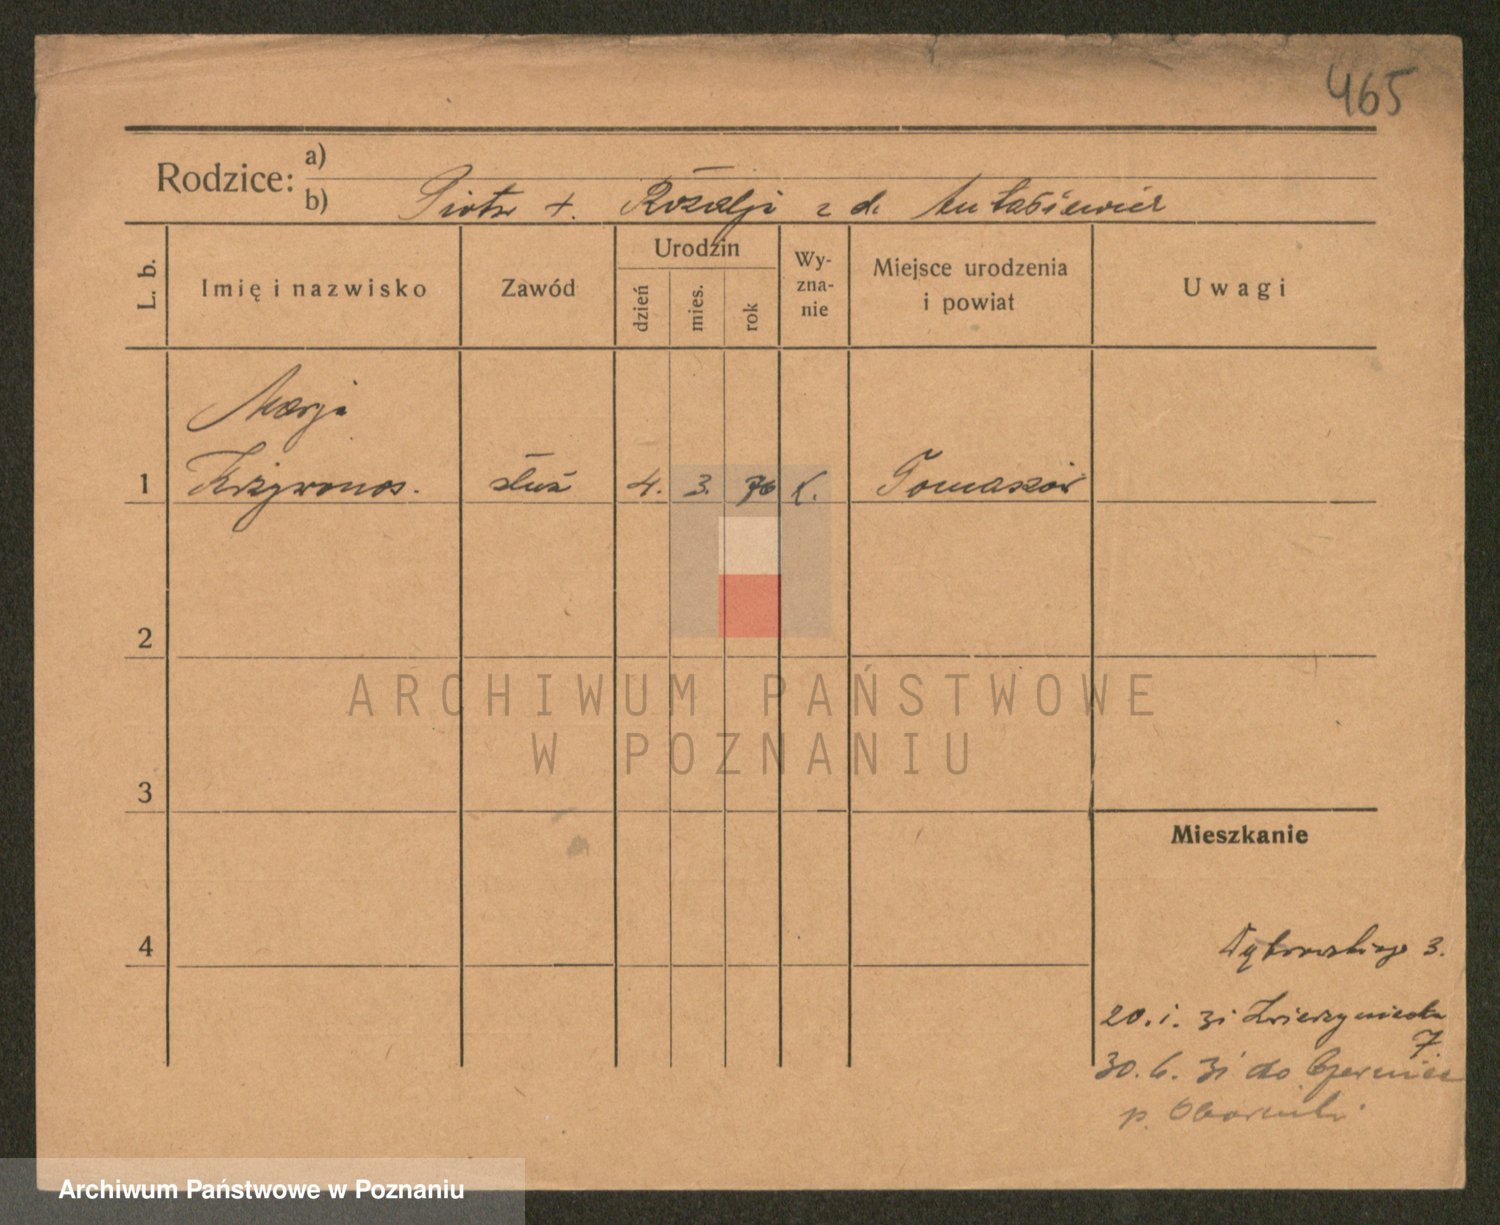 465
Rodzice: a)
b) Piotr +. Rozalji z d. Antasiewicz
L. b. Imię i nazwisko Zawód Urodzin dzień mies. rok Wy-zna-nie Miejsce urodzenia i powiat Uwagi
Marja
1 Krzywonos. służ 4. 3. 76 k. Tomaszów
2
ARCHIWUM PAŃSTWOWE
W POZNANIU
3
Mieszkanie
4
Dąbrowskiego 3.
20. 1. 31 Zwierzyniecka
7
30. 6. 31 do
p. Oborniki
Archiwum Państwowe w Poznaniu